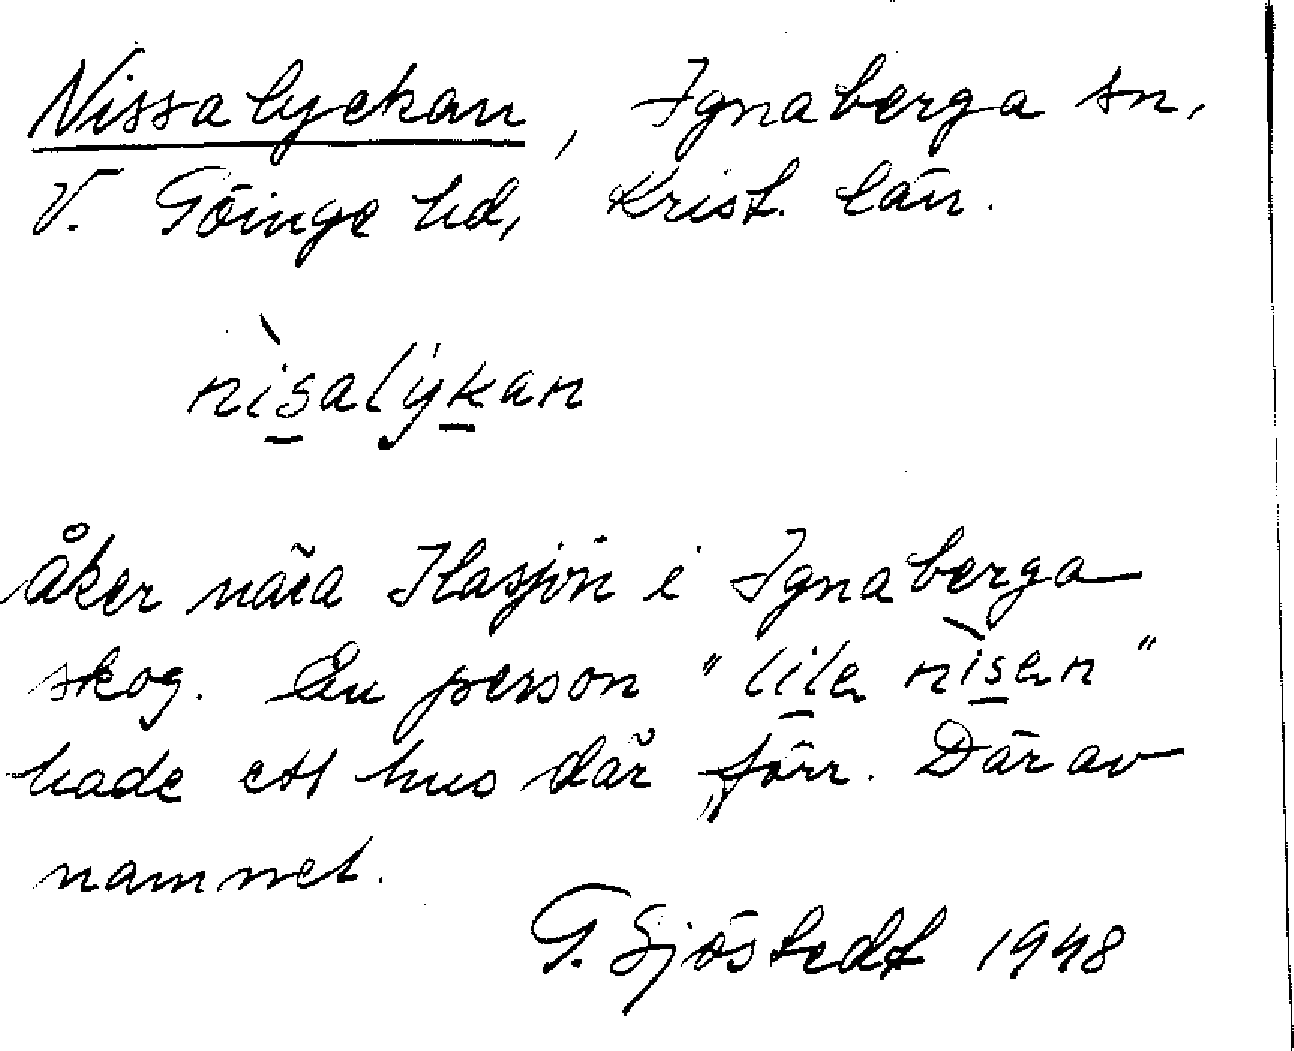 Nissalyckan, Ignaberga sn,
V. Göinge hd, Krist. län.
nìsalýkan
Åker nära Ilasjön i Ignaberga
skog. En person "lila nìsen"
hade ett hus där förr. Därav
namnet.
G. Sjöstedt 1948